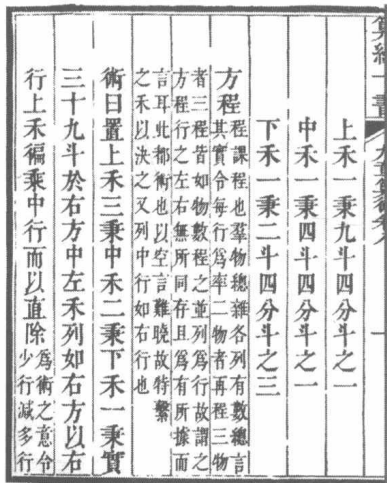 算經十書
上禾一秉九斗四分斗之一
中禾一秉四斗四分斗之一
下禾一秉二斗四分斗之三
方程程課程也羣物總雜各列有數總言
其實令每行爲率二物者再程三物
者三程皆如物數程之並列爲行故謂之
方程行之左右無所同存且爲有所據而
言耳此都術也以空言難曉故特繫
之禾以決之又列中行如右行也
術曰置上禾三秉中禾二秉下禾一秉實
三十九斗於右方中左禾列如右方以右
行上禾徧乘中行而以直除爲術之意令
少行減多行